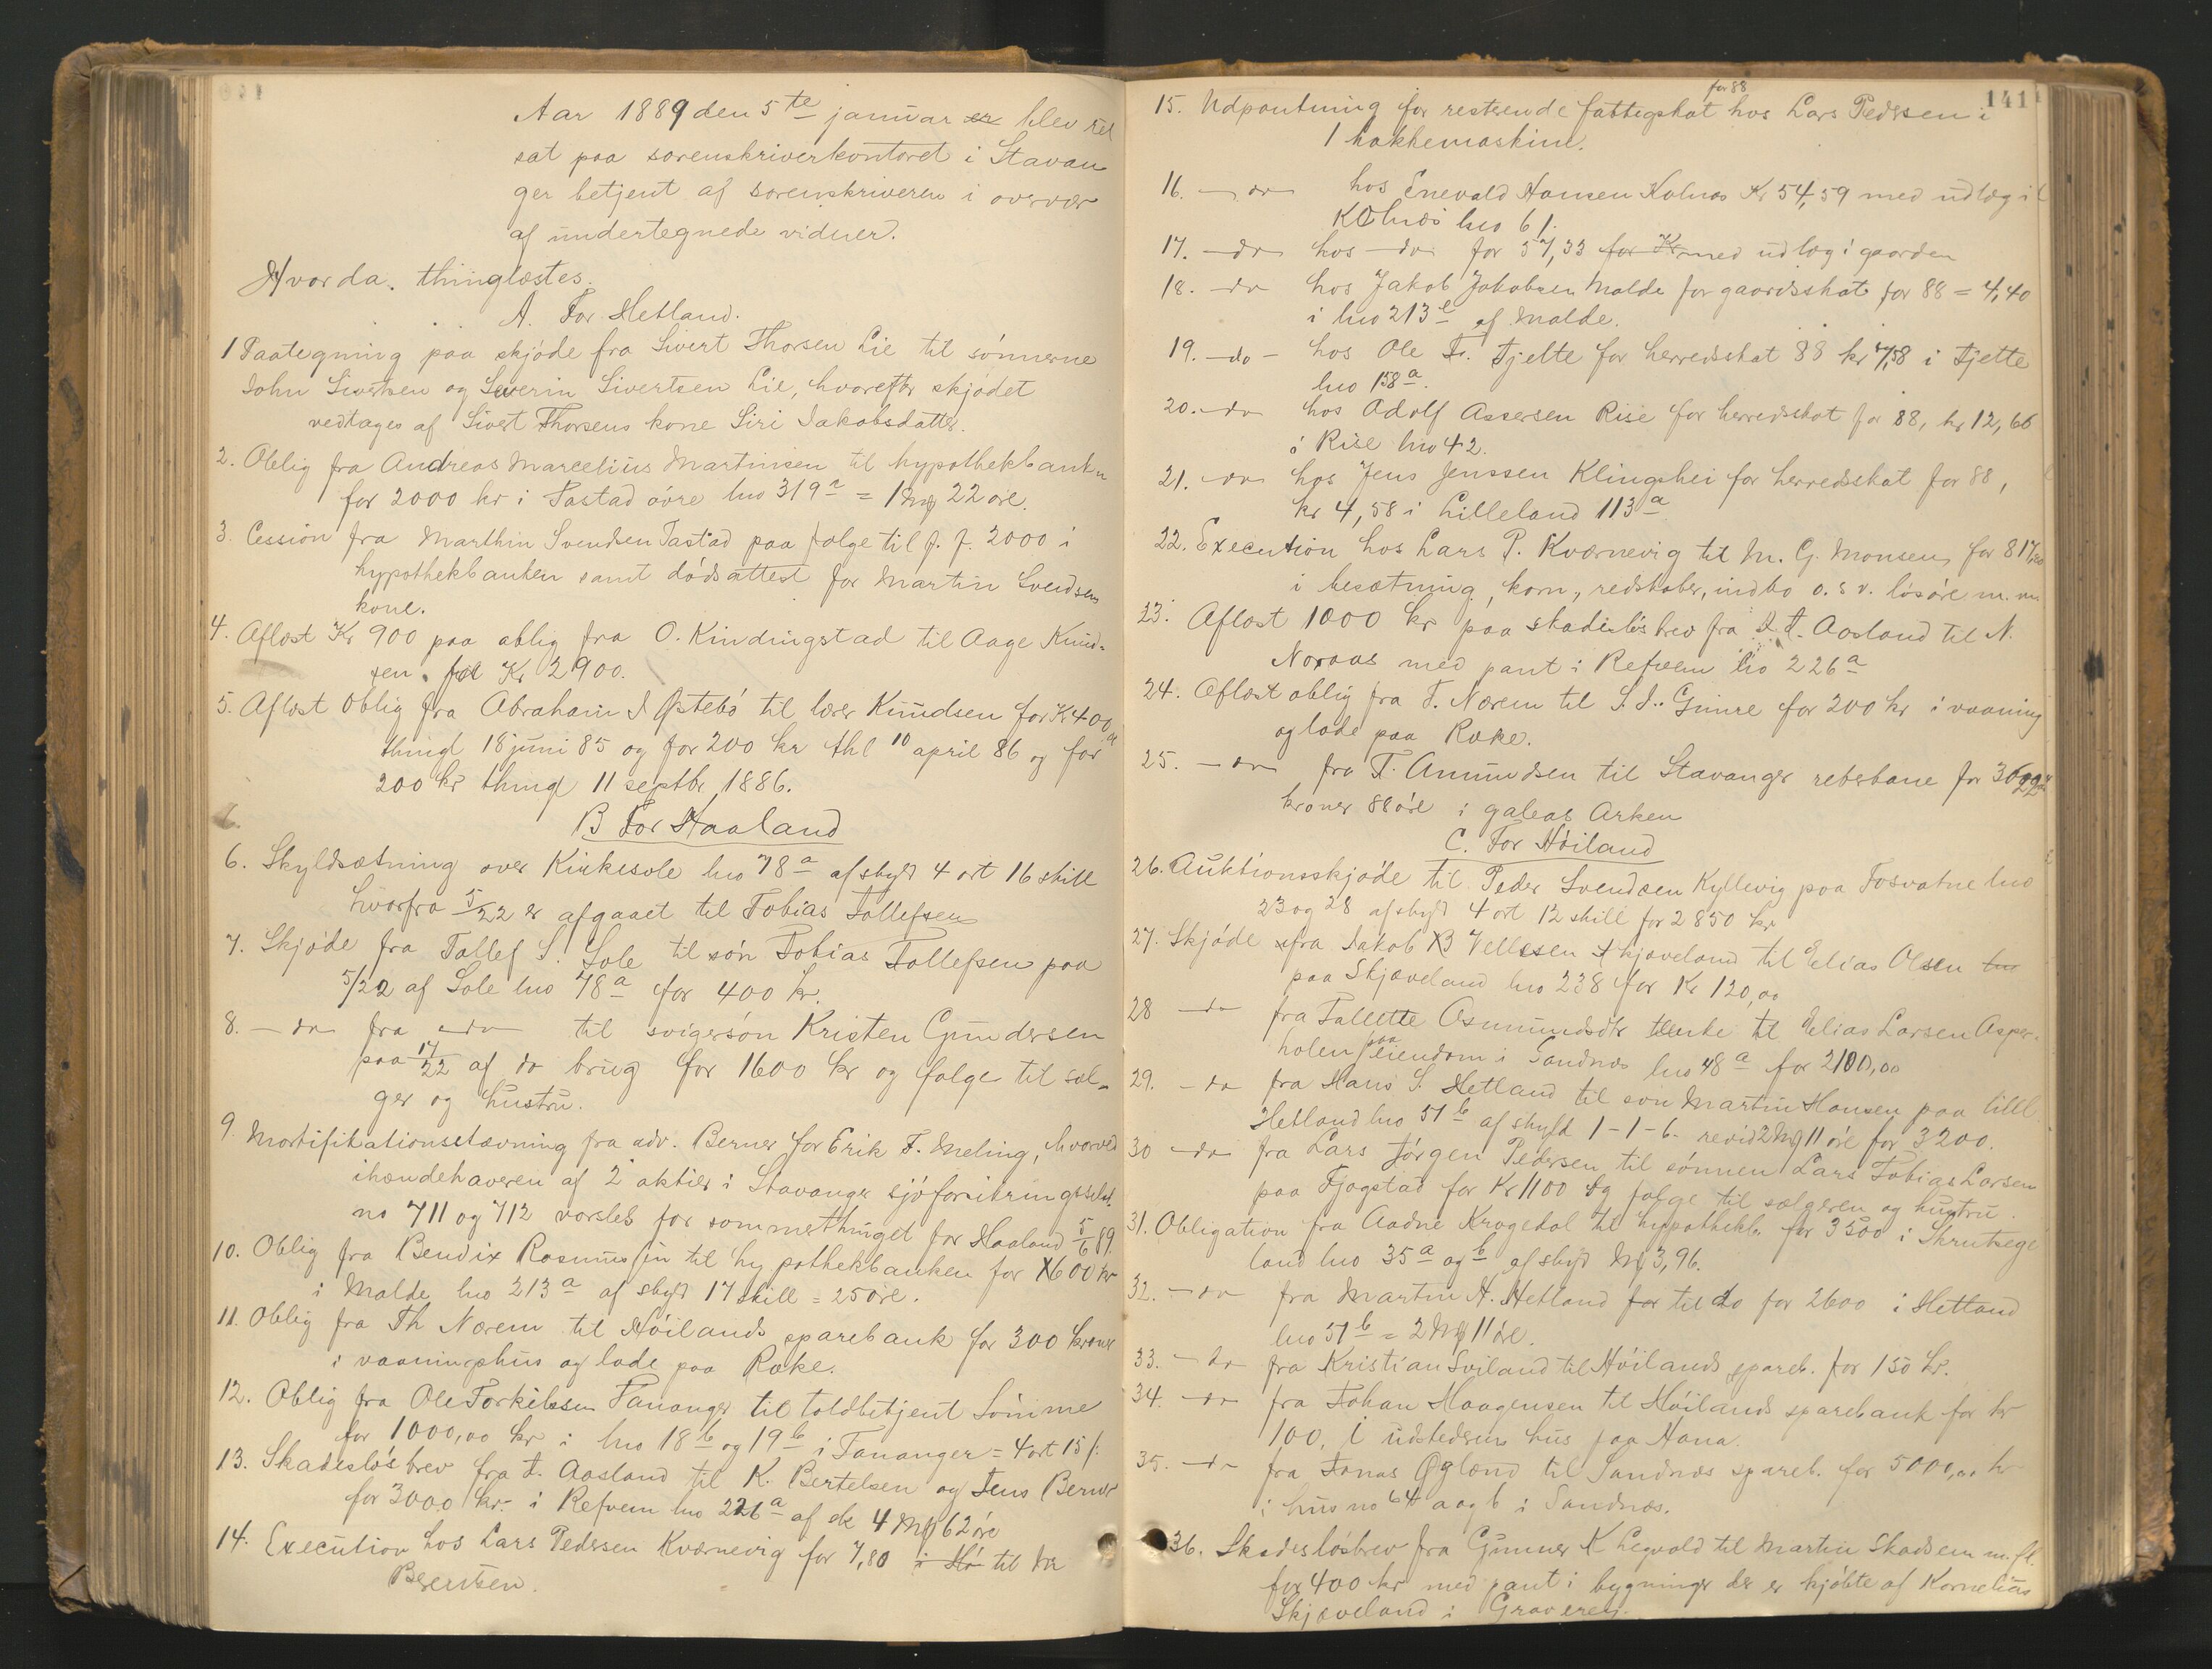 Aar 1889 den 5te januar er blev ret
sat paa sorenskriverkontoret i Stavan
ger betjent af sorenskriveren i overvær
af undertegnede vidner.
Hvor da. thinglæstes.
A. For Hetland.
1 Paategning paa skjøde fra Sivert Thorsen Lie til sønnerne
John Sivertsen og Severin Sivertsen Lie, hvorefter skjødet
vedtages af Sivert Thorsens kone Siri Jakobsdatter.
2. Oblig fra Andreas Marcelius Martinsen til hypothekbanken
for 2000 kr i Tastad øvre lno 319a = 1 Mk 22 øre.
3. Cession fra Marthin Svendsen Tastad paa følge til f. f. 2000 i
hypothekbanken samt dødsattest for Martin Svendsens
kone.
4. Aflæst Kr 900 paa oblig fra O. Kindingstad til Aage Knud-
sen. for Kr 2900.
5. Aflæst oblig fra Abraham I Østebø til lærer Knudsen for Kr 400
thingl 18 juni 85 og for 200 kr thl 10 april 86 og for
200 kr thingl 11 septbr 1886.
B For Haaland
6. Skyldsætning over Kirkesole lno 78a af skyld 4 ort 16 skill
hvorfra 5/22 er afgaaet til Tobias Tollefsen
7. Skjøde fra Tollef S. Sole til søn Tobias Tollefsen paa
5/22 af Sole lno 78a for 400 kr.
8. - do fra - do - til svigersøn Kristen Gundersen
paa 17/22 af do brug for 1600 kr og følge til sæl-
ger og hustru.
9. Mortifikationsstævning fra adv. Berner for Erik T. Meling, hvorved
ihændehaveren af 2 aktier i Stavanger sjøforsikringsselsk.
no 711 og 712 varsles for sommerthinget for Haaland 5/6 89.
10. Oblig fra Bendix Rasmussen til hypothekbanken for 1600 kr
i Malde lno 213a af skyld 17 skill = 25 øre.
11. Oblig fra Th Nærem til Høilands sparebank for 300 kroner
i vaaningshus og lade paa Røke.
12. Oblig fra Ole Torkilssen Tananger til toldbetjent Sømme
for 1000,00 kr i lno 18b og 19b i Tananger = 4 ort 15 s.
13. Skadesløsbrev fra T. Aasland til K. Bertelsen og Jens Berner
for 3000 kr. i Refvem lno 226a af sk 4 Mk 62 øre
14. Execution hos Lars Pedersen Kværnevig for 7,80 i Hø til
Berentsen.
141
for 88
15. Udpantning for resterende fattigskat hos Lars Pedersen i
1 hakkemaskine.
16. - do - hos Enevald Hansen Kolnæs Kr 54,59 med udlæg i
Kolnæs lno 61.
17. - do hos - do for 57,33 for Kr med udlæg i gaarden
18. - do hos Jakob Jakobsen Malde for gaardsskat for 88 = 4,40
i lno 213e af Malde.
19. - do - hos Ole Tr. Tjelte for herredsskat 88 kr 4,58 i Tjelte
lno 158a.
20. - do hos Adolf Assersen Rise for herredsskat for 88, kr 12,66
i Rise lno 42.
21. - do hos Jens Jenssen Klingshei for herredsskat for 88,
kr 4,58 i Lilleland 113a
22. Execution hos Lars P. Kværnevig til M. G. Monsen for 817,
i besætning, korn, redskaber, indbo o. s v. løsøre m. m
23. Aflæst 1000 kr paa skadesløsbrev fra T. Aasland til N.
Noraas med pant i Refvem lno 226a
24. Aflæst oblig fra T. Nærem til S. J. Gimre for 200 kr i vaaning
og lade paa Røke.
25. - do - fra T. Amundsen til Stavanger reberbane for
kroner 88 øre i galeas Arken
C. For Høiland
26. Auktionsskjøde til Peder Svendsen Kyllevig paa Fosvatne lno
23 og 28 af skyld 4 ort 12 skill for 2850 kr
27. Skjøde fra Jakob B Vellesen Skjæveland til Elias Olsen
paa Skjæveland lno 238 for Kr 120,00
28 - do fra Tallette Osmundsdtr enke til Elias Larsen Asper-
holen paa eiendom i Sandnæs lno 48a for 2100,00
29. - do fra Hans S. Hetland til søn Martin Hansen paa lille
Hetland lno 51b af skyld 1-1-6. revid 2 Mk 11 øre for 3200.
30 - do fra Lars Jørgen Pedersen til sønnen Lars Tobias Larsen
paa Fjogstad for Kr 1100 og følge til sælgeren og hustru.
31. Obligation fra Aadne Krogedal til hypothekb. for 3500 i Skrutege
land lno 35a og b af skyld Mk 3,96.
32. - do fra Martin H. Hetland for til do for 2600 i Hetland
lno 51b = 2 Mk 11 øre.
33. - do fra Kristian Sviland til Høilands spareb. for 150 kr.
34. - do fra Johan Haagensen til Høilands sparebank for kr
100, i udstederens hus paa Hana
35. - do fra Jonas Øglænd til Sandnæs spareb. for 5000,00 kr
i hus no 64 a og b i Sandnæs.
36. Skadesløsbrev fra Gunner K Legvold til Martin Skadsem m. fl.
for 400 kr med pant i bygninger der er kjøbte af Kornelius
Skjæveland i Graveren.